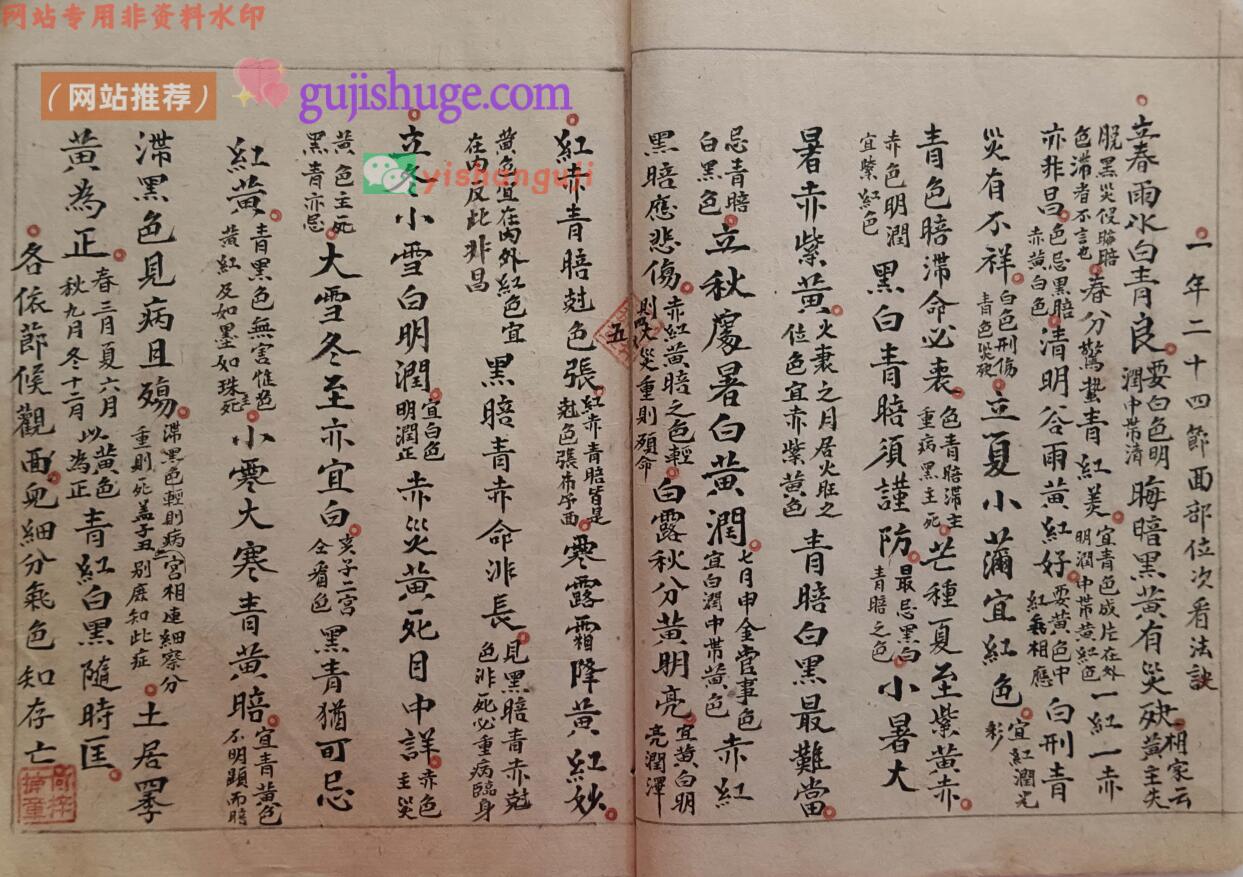 网站专用非资料水印
（网站推荐）
gujishuge.com
yishanguji
一年二十四節面部位次看法訣
立春雨水白青良要白色明潤中帶清晦暗黑黃有災殃相家云黃主失
脫黑災侵臨暗色滯者不言也春分驚蟄青紅美宜青色成片在外明潤中帶黃紅色一紅一赤
亦非昌色忌黑暗赤黃白色清明谷雨黃紅好要黃色中紅氣相應白刑青
災有不祥白色刑傷青色災殃立夏小滿宜紅色宜紅潤光彩
青色暗滯命必衰色青暗滯主重病黑主死芒種夏至紫黃赤
赤色明潤宜紫紅色黑白青暗須謹防最忌黑白青暗之色小暑大
暑赤紫黃火衰之月居火旺之位色宜赤紫黃色青暗白黑最難當
忌青暗白黑色立秋處暑白黃潤七月申金管事色宜白潤中帶黃色赤紅
黑暗應悲傷赤紅黃暗之色輕則災重則殞命白露秋分黃明亮宜黃白明亮潤澤
五
紅赤青暗尅色張紅赤青暗皆是尅色張布于面寒露霜降黃紅妙
黃色宜在內外紅色宜在內反此非昌黑暗青赤命非長見黑暗青赤尅色非死必重病臨身
立冬小雪白明潤宜白色明潤正赤災黃死目中詳赤色主災
黃色主死黑青亦忌大雪冬至亦宜白亥子二宮仝看色黑青猶可忌
紅黃青黑色無害惟色黃紅及如墨如珠主死小寒大寒青黃暗宜青黃色不明顯而暗
滯黑色見病且殤滯黑色輕則病重則死蓋子丑二宮相連細察分別庶知此症土居四季
黃為正春三月夏六月秋九月冬十二月以黃色為正青紅白黑隨時匡
各依節候觀面皃細分氣色知存亡